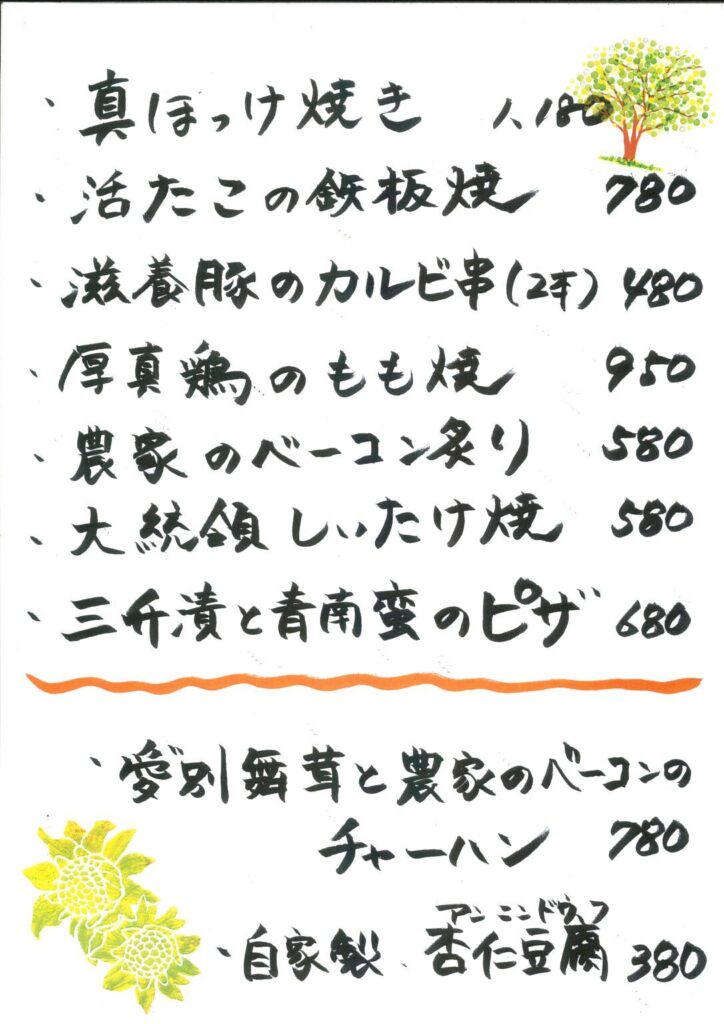 、真ほっけ焼き 1、180
、活たこの鉄板焼 780
、滋養豚のカルビ串(2本) 480
、厚真鶏のもも焼 950
、農家のベーコン炙り 580
、大統領しいたけ焼 580
、三升漬と青南蛮のピザ 680
、愛別舞茸と農家のベーコンの
チャーハン 780
アンニンドウフ
、自家製、杏仁豆腐 380